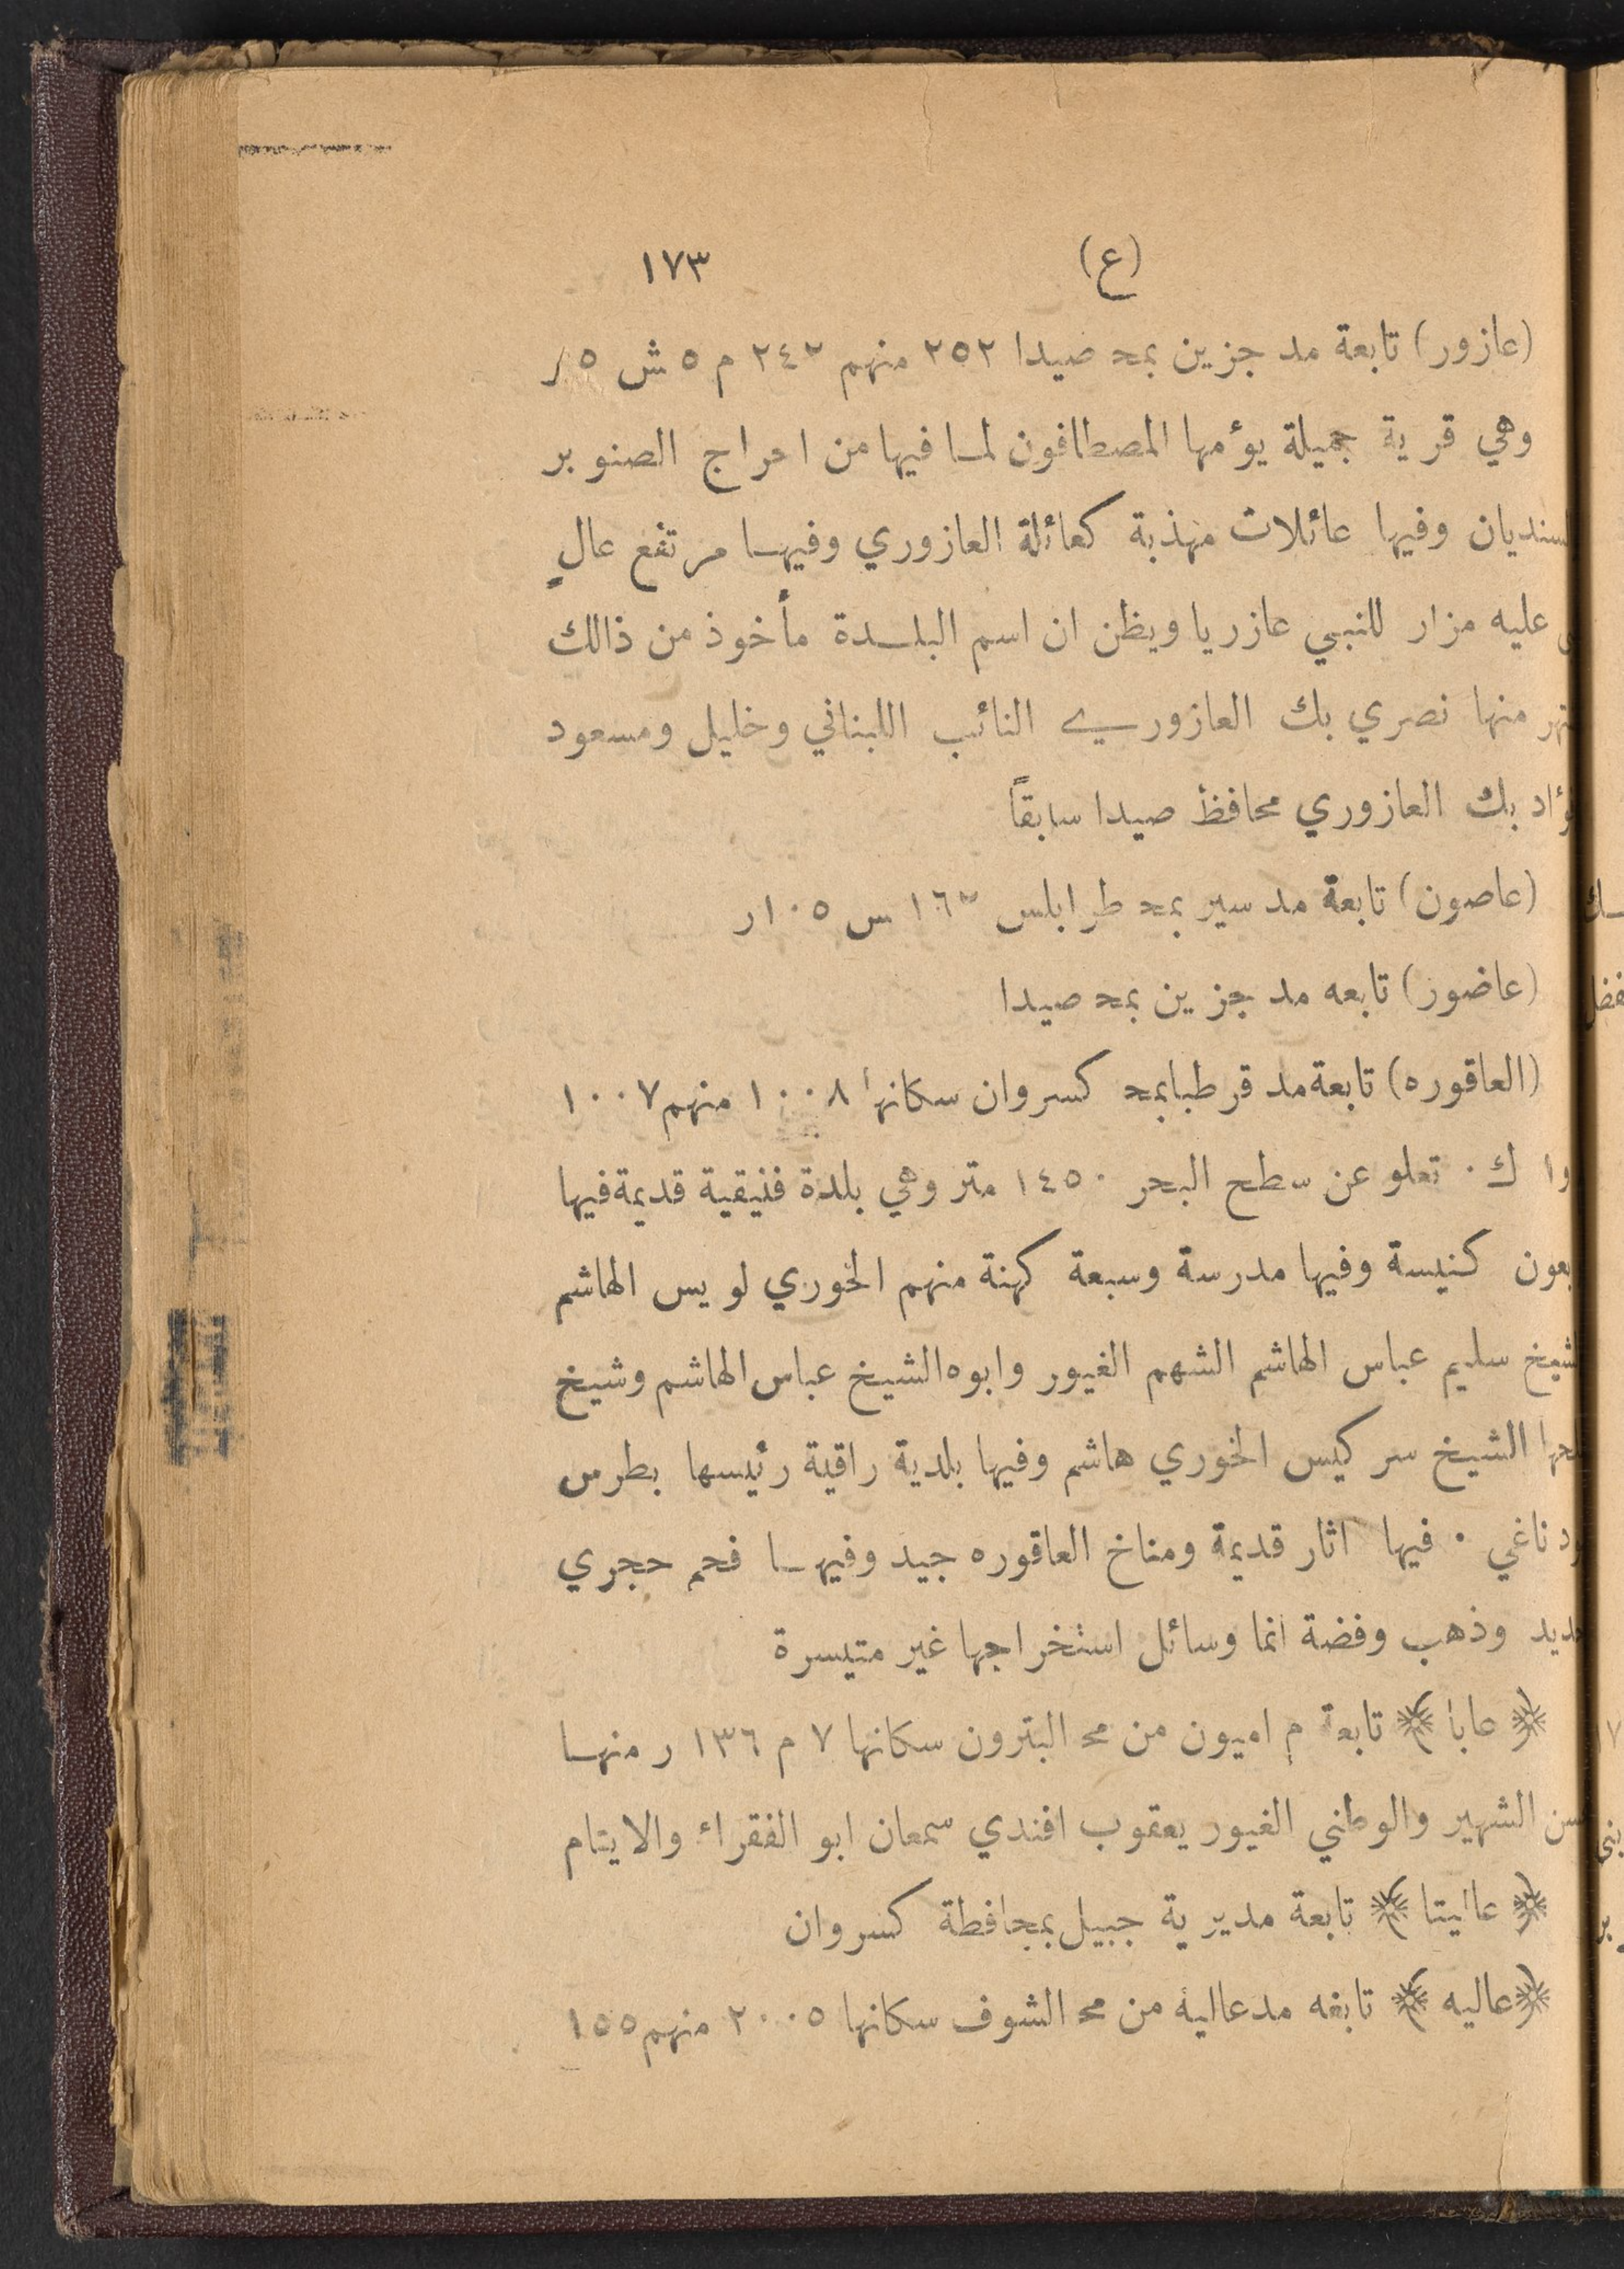 (ع) ١٧٣
(عازور) تابعة مد جزين بمحـ صيدا ٢٥٢ منهم ٢٤٢ م ٥ ش ٥ ر
وهي قرية جميلة يؤمها المصطافون لما فيها من احراج الصنوبر
سنديان وفيها عائلات مهذبة كعائلة العازوري وفيها مرتفع عالٍ
عليه مزار للنبي عازريا ويظن ان اسم البلدة مأخوذ من ذالك
منها نصري بك العازوري النائب اللبناني وخليل ومسعود
ؤاد بك العازوري محافظ صيدا سابقاً
(عاصون) تابعة مد سير بمحـ طرابلس س ١٠٥ ر
(عاضور) تابعه مد جزين بمحـ صيدا
(العاقوره) تابعة مد قرطبا بمحـ كسروان سكانها ١٠٠٨ منهم ١٠٠٧
و١ ك ٠ تعلو عن سطح البحر ١٤٥٠ متر وهي بلدة فنيقية قديمة فيها
بعون كنيسة وفيها مدرسة وسبعة كهنة منهم الخوري لويس الهاشم
شيخ سليم عباس الهاشم الشهم الغيور وابوه الشيخ عباس الهاشم وشيخ
الشيخ سركيس الخوري هاشم وفيها بلدية راقية رئيسها بطرس
ناغي ٠ فيها اثار قديمة ومناخ العاقوره جيد وفيها فحم حجري
ديد وذهب وفضة انما وسائل استخراجها غير متيسرة
﴿ عابا ﴾ تابعة م اميون من محـ البترون سكانها ٧ م ١٣٦ ر منها
سن الشهير والوطني الغيور يعقوب افندي سمعان ابو الفقراء والايتام
﴿ عاليتا ﴾ تابعة مديرية جبيل بمحافظة كسروان
﴿ عاليه ﴾ تابعه مد عاليه من محـ الشوف سكانها ٢٠٠٥ منهم ١٥٥